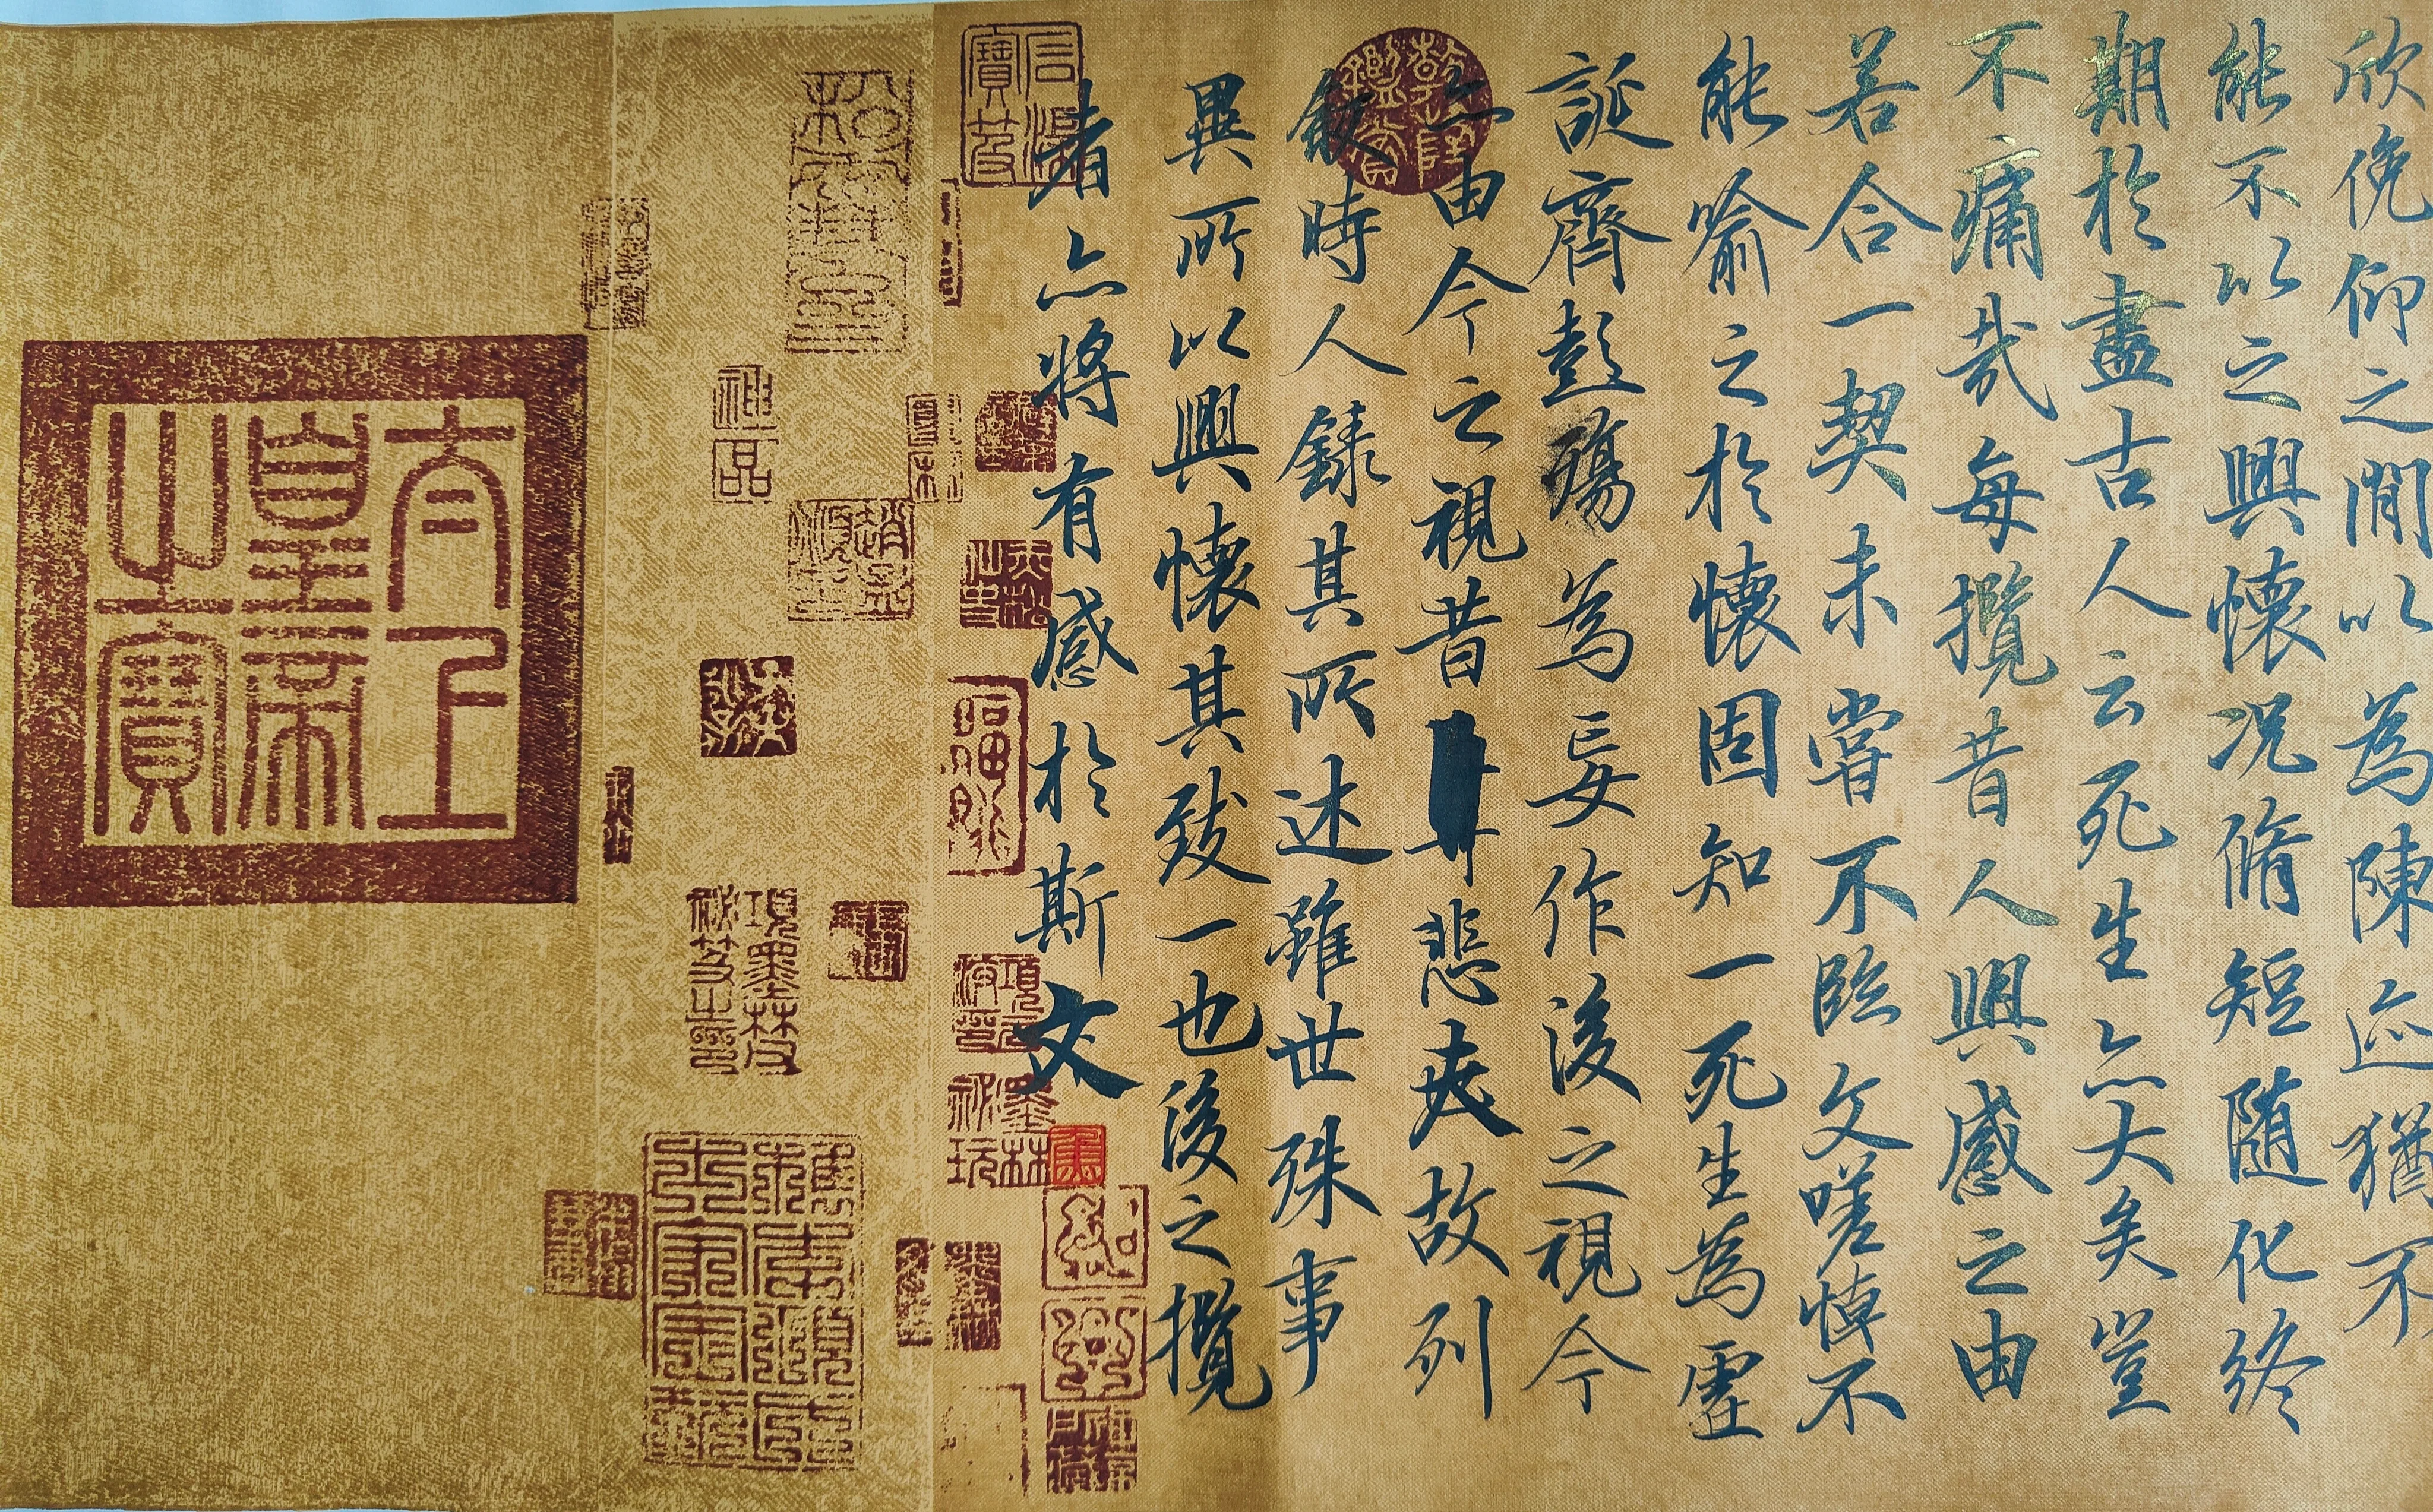 欣俛仰之閒以為陳迹猶不
能不以之興懷況脩短隨化終
期於盡古人云死生亦大矣豈
不痛哉每攬昔人興感之由
若合一契未嘗不臨文嗟悼不
能喻之於懷固知一死生為虛
誕齊彭殤為妄作後之視今
亦由今之視昔悲夫故列
敘時人錄其所述雖世殊事
異所以興懷其致一也後之攬
者亦將有感於斯文
乾隆鑑賞
墨林祕玩
神品
項墨林父祕笈之印
太上皇帝之寶